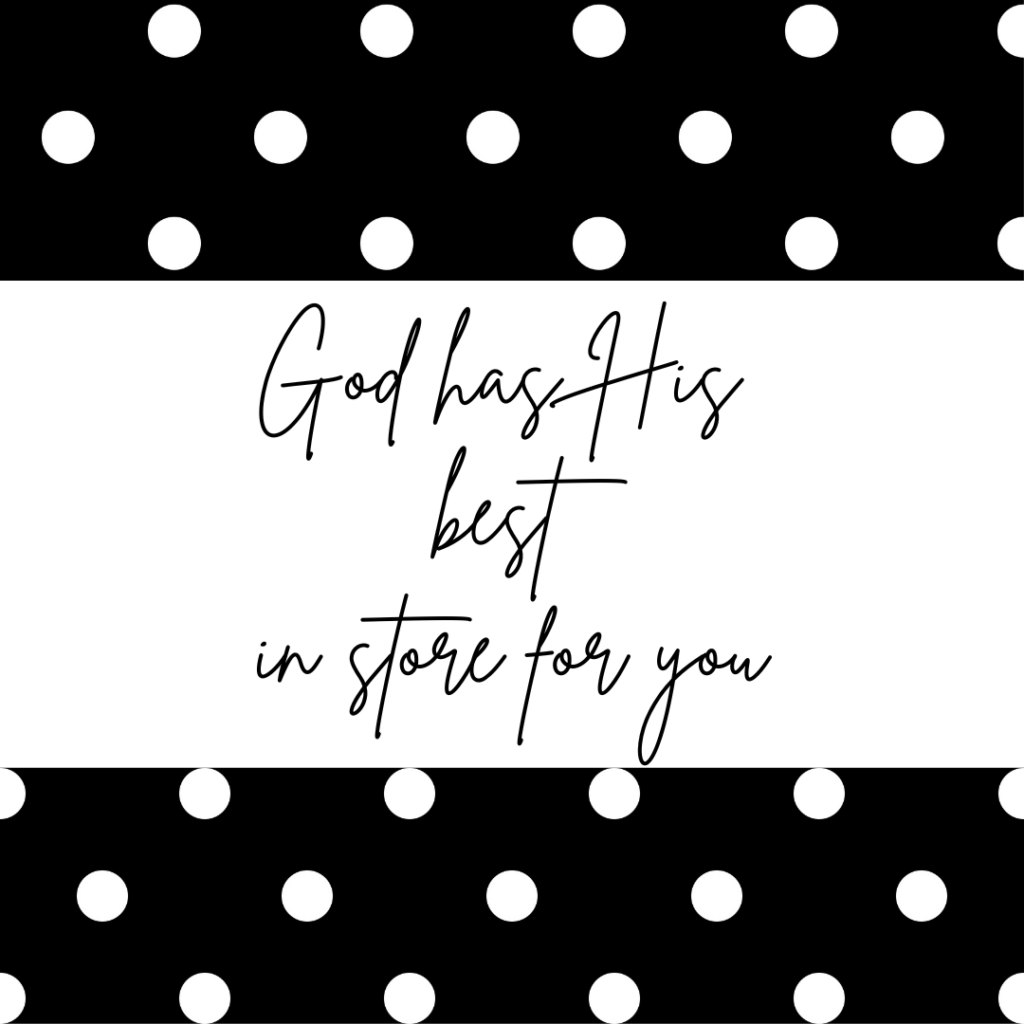 God has His
best
in store for you